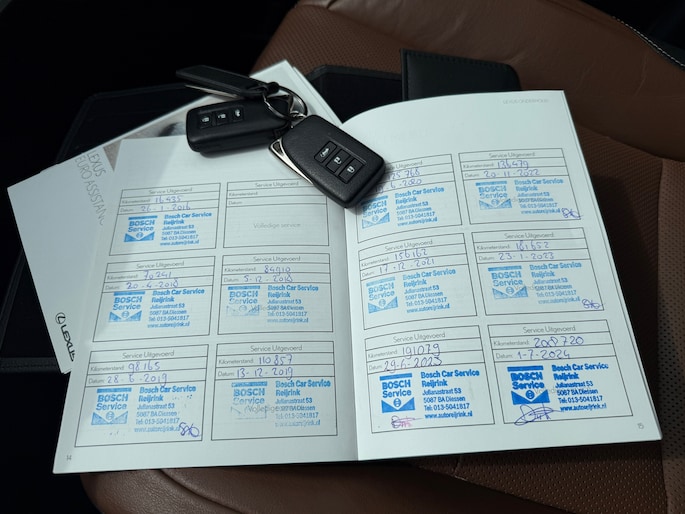 LEXUS
EURO ASSISTANCE
LEXUS
Service Uitgevoerd
Kilometerstand: 16435
Datum: 2016
BOSCH Service
Bosch Car Service
Reijrink
Julianastraat 53
5087 BA Diessen
Tel: 013-5041817
www.autoreijrink.nl
Service Uitgevoerd
Kilometerstand:
Datum:
Volledige service
Service Uitgevoerd
Kilometerstand:
Datum: 20-4-2018
BOSCH Service
Bosch Car Service
Reijrink
Julianastraat 53
5087 BA Diessen
Tel: 013-5041817
www.autoreijrink.nl
Service Uitgevoerd
Kilometerstand: 84910
Datum: 5-12-2018
BOSCH Service
Bosch Car Service
Reijrink
Julianastraat 53
5087 BA Diessen
Tel: 013-5041817
www.autoreijrink.nl
Service Uitgevoerd
Kilometerstand: 98165
Datum: 28-6-2019
BOSCH Service
Bosch Car Service
Reijrink
Julianastraat 53
5087 BA Diessen
Tel: 013-5041817
www.autoreijrink.nl
Service Uitgevoerd
Kilometerstand: 110857
Datum: 13-12-2019
BOSCH Service
Bosch Car Service
Reijrink
Julianastraat 53
5087 BA Diessen
Tel: 013-5041817
www.autoreijrink.nl
14
Service Uitgevoerd
6-2020
Bosch Car Service
Reijrink
Julianastraat 53
5087 BA Diessen
Tel: 013-5041817
www.autoreijrink.nl
Service Uitgevoerd
Kilometerstand: 136479
Datum: 20-11-2022
BOSCH Service
Bosch Car Service
Reijrink
Julianastraat 53
5087 BA Diessen
Tel: 013-5041817
www.autoreijrink.nl
Service Uitgevoerd
Kilometerstand: 156162
Datum: 17-12-2021
BOSCH Service
Bosch Car Service
Reijrink
Julianastraat 53
5087 BA Diessen
Tel: 013-5041817
www.autoreijrink.nl
Service Uitgevoerd
Kilometerstand: 181652
Datum: 23-1-2023
BOSCH Service
Bosch Car Service
Reijrink
Julianastraat 53
5087 BA Diessen
Tel: 013-5041817
www.autoreijrink.nl
Service Uitgevoerd
Kilometerstand: 191079
Datum: 29-6-2023
BOSCH Service
Bosch Car Service
Reijrink
Julianastraat 53
5087 BA Diessen
Tel: 013-5041817
www.autoreijrink.nl
Service Uitgevoerd
Kilometerstand: 200720
Datum: 1-7-2024
BOSCH Service
Bosch Car Service
Reijrink
Julianastraat 53
5087 BA Diessen
Tel: 013-5041817
www.autoreijrink.nl
15